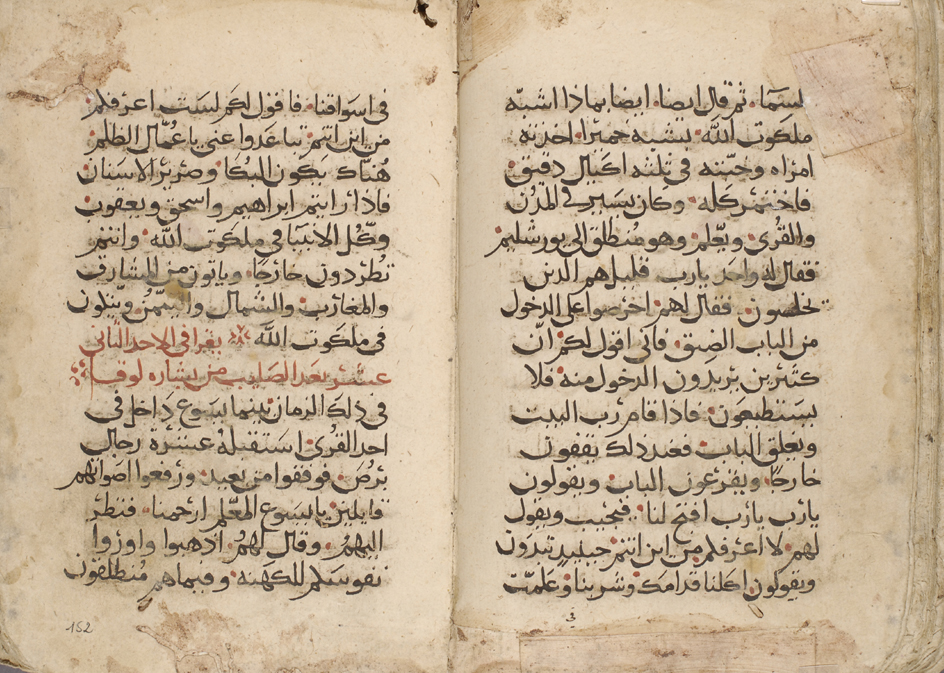 لسما، ثم قال ايضا، ايضا بماذا اشبه
ملكوت الله، يشبه خميرا، اخذته
امراه وخبته في ثلثه اكيال دقيق
فاختمر كله، وكان يسير في المدن
والقرى، ويعلم، وهو منطلق الى يورشليم
فقال له واحد يارب، قليل هم الذين
يخلصون، فقال لهم، احرصوا على الدخول
من الباب الضيق، فاني اقول لكم ان
كثيرين يريدون الدخول منه، فلا
يستطيعون، فاذا قام رب البيت
ويغلق الباب، فعند ذلك يقفون
خارجا، ويقرعون الباب، ويقولون
يارب يارب افتح لنا، فيجيب ويقول
لهم، لا اعرفكم من اين انتم حينيد تبدون
ويقولون اكلنا قدامك، وشربنا، وعلمت
في
في اسواقنا، فاقول لكم لست اعرفكم
من اين انتم، تباعدوا عني يا عمال الظلم
هناك يكون البكا، وصرير الاسنان
فاذا رايتم ابراهيم واسحق ويعقوب
وكل الانبيا في ملكوت الله، وانتم
تطردون خارجا، وياتون من المشارق
والمغارب، والشمال، واليمن ويتكون
في ملكوت الله، يقرا في الاحد الثاني
عشر بعد الصليب من بشاره لوقا
في ذلك الزمان بينما يسوع داخل في
احد القرى، استقبله عشرة رجال
برص، فوقفوا من بعيد، ورفعوا اصواتهم
قايلين، يا يسوع المعلم ارحمنا، فنظر
اليهم، وقال لهم، اذهبوا واوروا
نفوسكم للكهنه، وفيما هم منطلقون
152